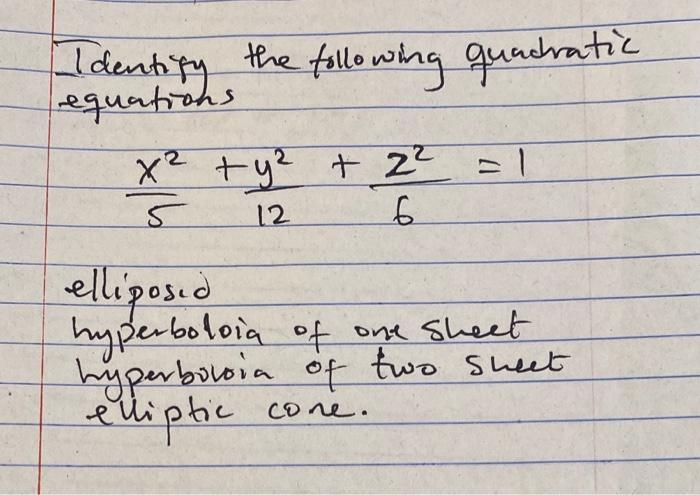 Identify the following quadratic
equations
x² + y² + z² = 1
5 12 6
elliposid
hyperboloia of one sheet
hyperboloia of two sheet
elliptic cone.